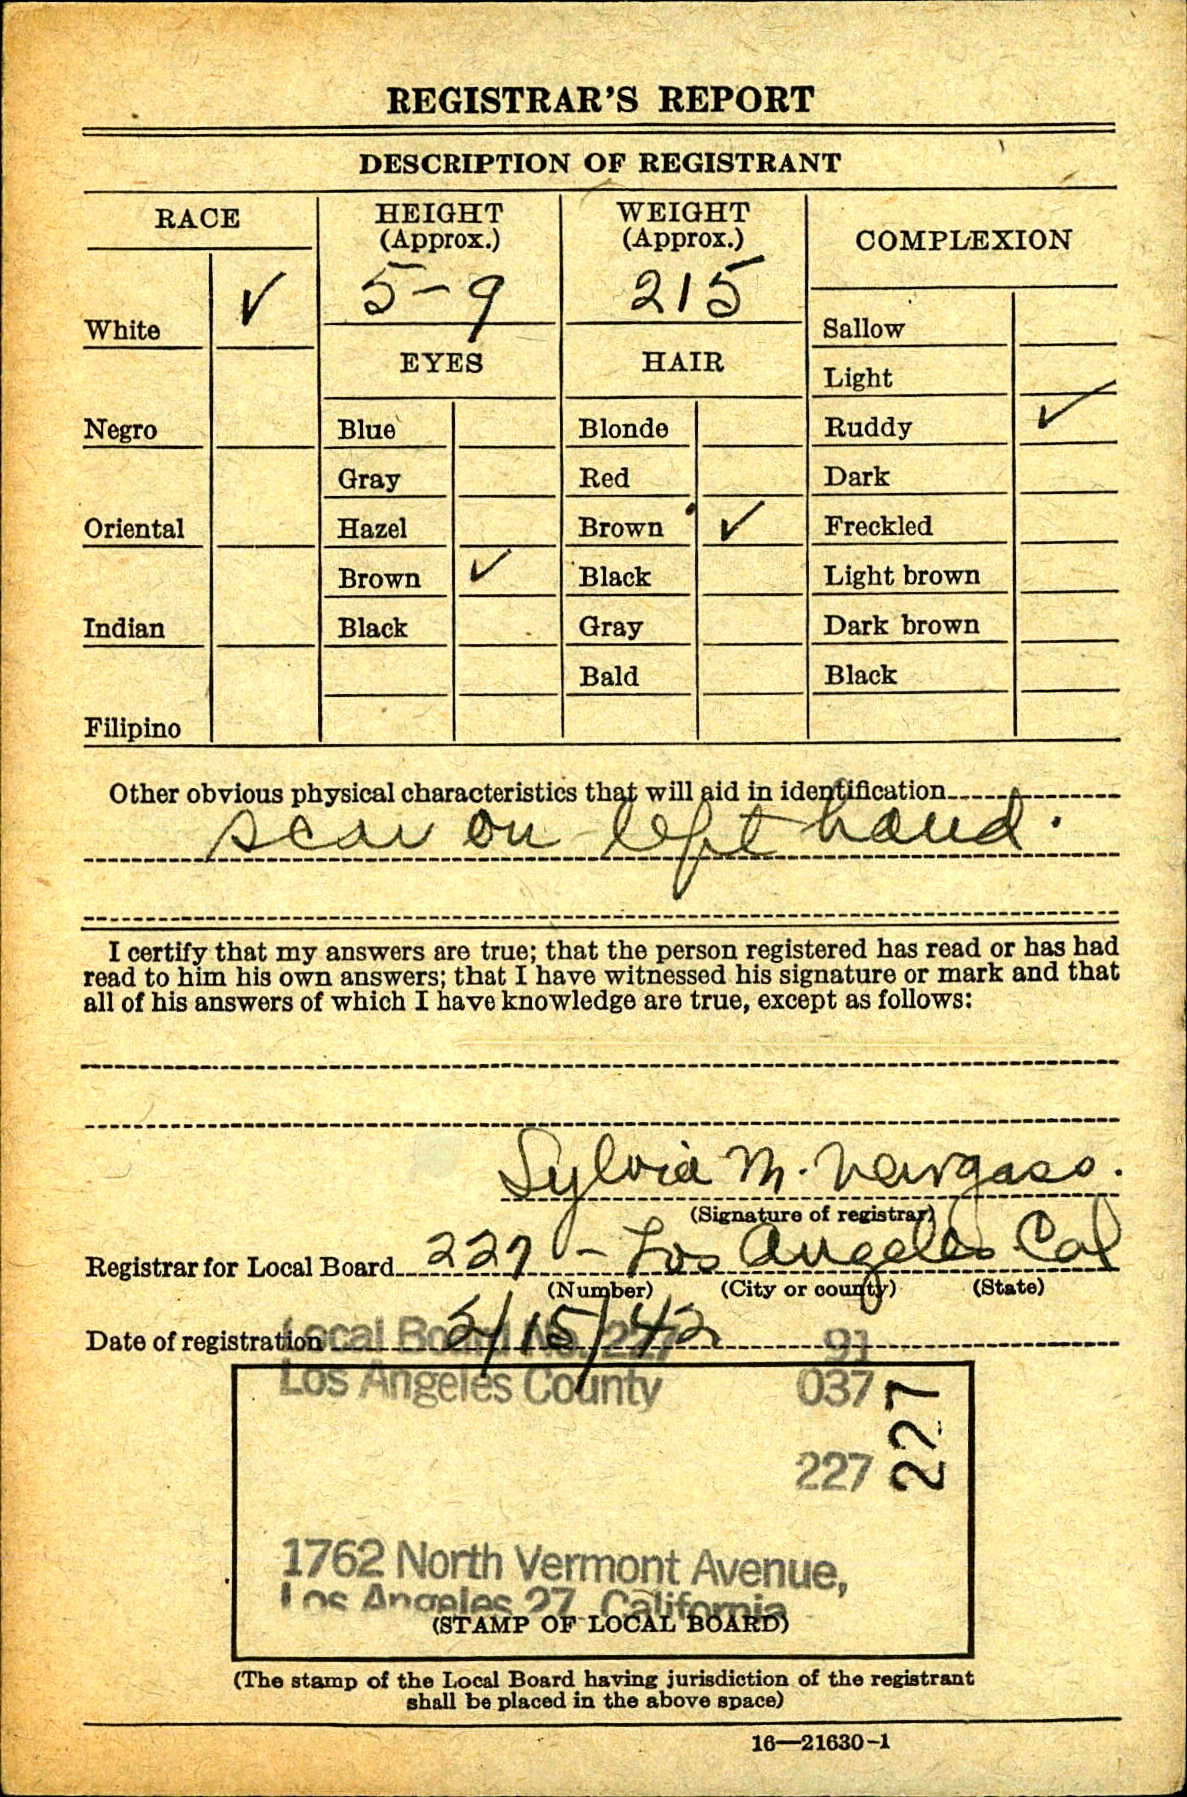 REGISTRAR'S REPORT
DESCRIPTION OF REGISTRANT
RACE
HEIGHT
(Approx.)
WEIGHT
(Approx.)
COMPLEXION
5-9
215
White ✓
Sallow
EYES
HAIR
Light
Negro
Blue
Blonde
Ruddy ✓
Gray
Red
Dark
Oriental
Hazel
Brown ✓
Freckled
Brown ✓
Black
Light brown
Indian
Black
Gray
Dark brown
Bald
Black
Filipino
Other obvious physical characteristics that will aid in identification
scar on left hand.
I certify that my answers are true; that the person registered has read or has had
read to him his own answers; that I have witnessed his signature or mark and that
all of his answers of which I have knowledge are true, except as follows:
Sylvia M.
(Signature of registrar)
Registrar for Local Board 227 - Los Angeles Cal
(Number) (City or county) (State)
Date of registration 2/15/42
Local Board No. 227 91
Los Angeles County 037
227
227
1762 North Vermont Avenue,
Los Angeles 27, California
(STAMP OF LOCAL BOARD)
(The stamp of the Local Board having jurisdiction of the registrant
shall be placed in the above space)
16—21630-1